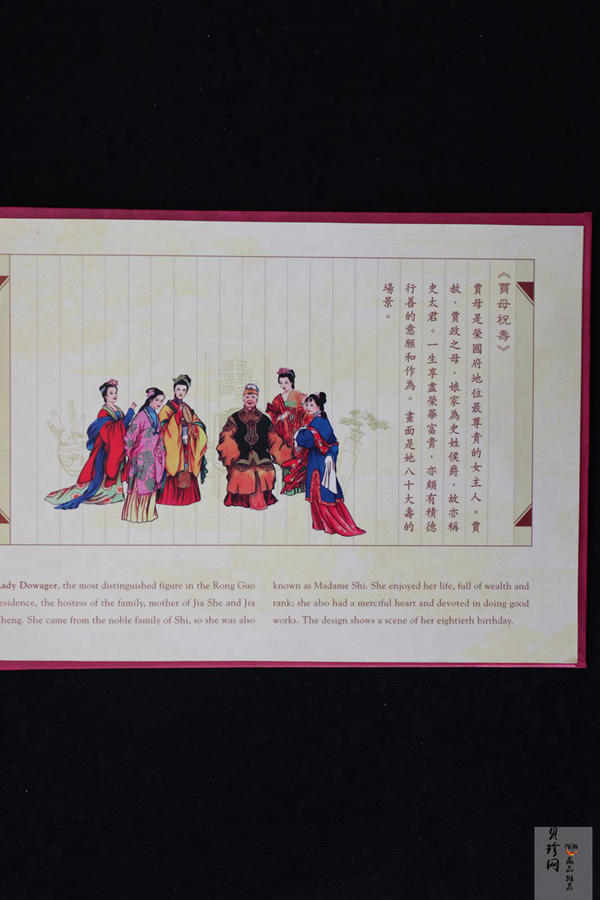 《賈母祝壽》
賈母是榮國府地位最尊貴的女主人。賈
赦、賈政之母，娘家為史姓侯爵，故亦稱
史太君。一生享盡榮華富貴，亦頗有積德
行善的意願和作為。畫面是她八十大壽的
場景。
壽
Lady Dowager, the most distinguished figure in the Rong Guo
residence, the hostess of the family, mother of Jia She and Jia
Zheng. She came from the noble family of Shi, so she was also
known as Madame Shi. She enjoyed her life, full of wealth and
rank; she also had a merciful heart and devoted in doing good
works. The design shows a scene of her eightieth birthday.
貝珍网
藏品推荐